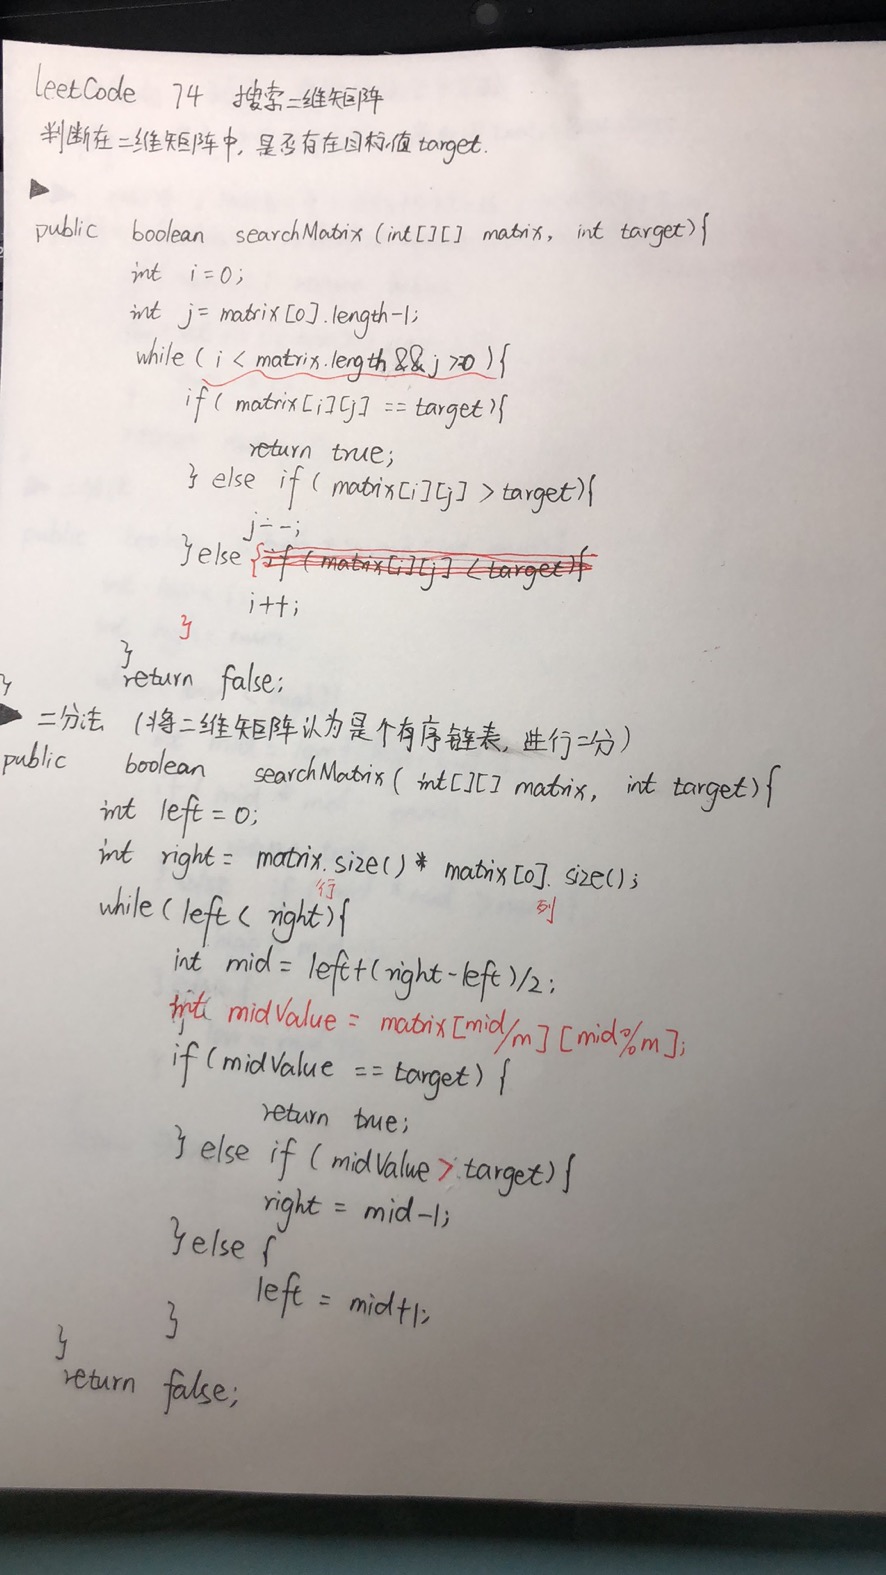 leetCode 74 搜索二维矩阵
判断在二维矩阵中, 是否有在目标值 target.
public boolean searchMatrix (int[][] matrix, int target){
int i=0;
int j= matrix[0].length-1;
while ( i < matrix.length && j >=0 ){
if( matrix[i][j] == target){
return true;
} else if ( matrix[i][j] > target){
j--;
}else { if ( matrix[i][j] < target){
i++;
}
}
return false;
}
二分法 (将二维矩阵认为是个有序链表, 进行二分)
public boolean searchMatrix( int[][] matrix, int target){
int left = 0;
int right = matrix.size() * matrix[0].size();
行 列
while ( left < right){
int mid = left+(right-left)/2;
int midValue = matrix[mid/m][mid%m];
if (midValue == target) {
return true;
} else if ( midValue > target){
right = mid-1;
}else {
left = mid+1;
}
}
return false;